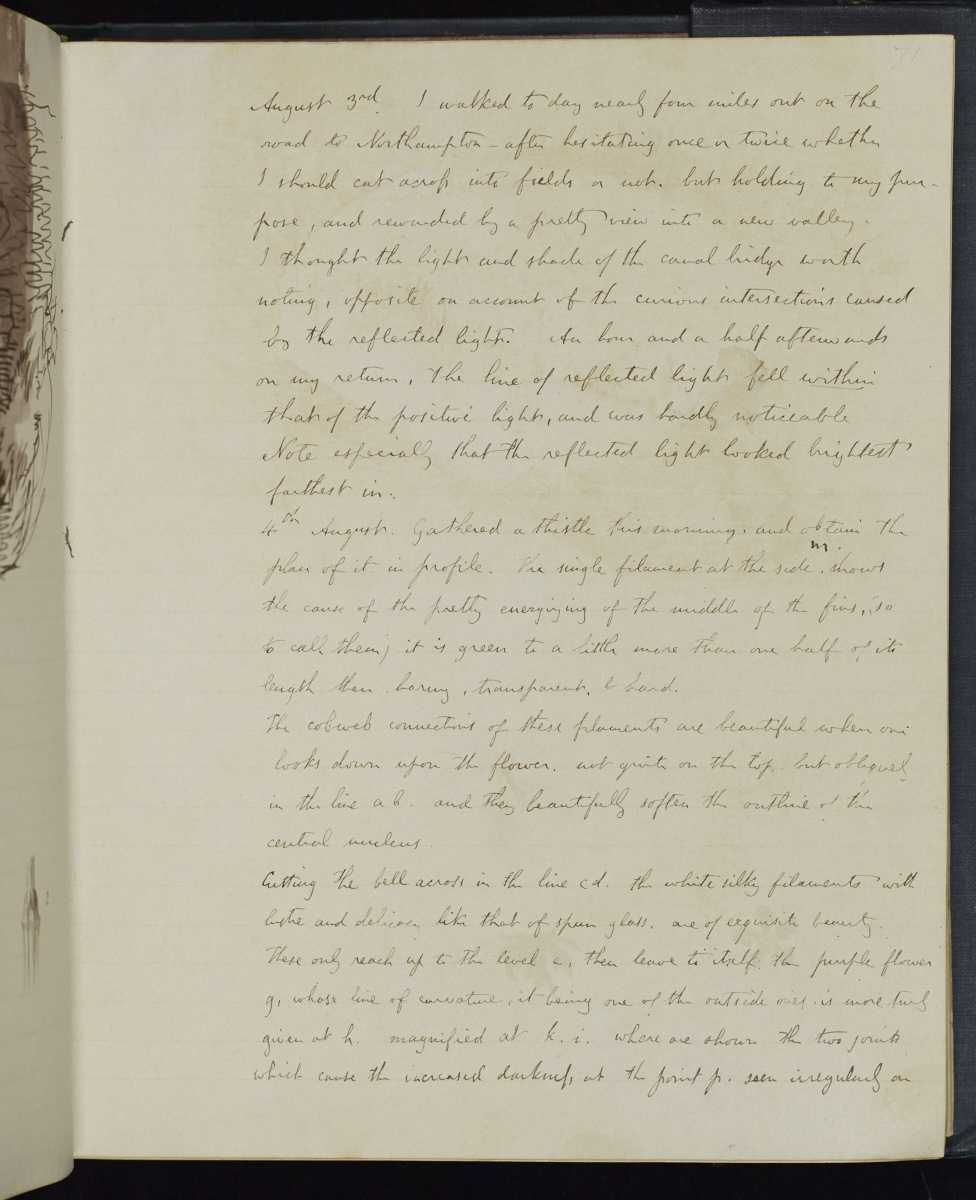 71
August 3rd. I walked to day nearly four miles out on the
road to Northampton – after hesitating once or twice whether
I should cut across into fields or not. but holding to my pur-
pose, and rewarded by a pretty view into a new valley.
I thought the light and shade of the canal bridge worth
noting, opposite on account of the curious intersections caused
by the reflected light. An hour and a half afterwards
on my return, the line of reflected light fell within
that of the positive light, and was hardly noticeable
Note especially that the reflected light looked brightest
farthest in.
4th August. Gathered a thistle this morning. and obtain the
plan of it in profile. The single filament at the side. m. shows
the cause of the pretty energizing of the middle of the fins, (so
to call them) it is green to a little more than one half of its
length then horny, transparent, & hard.
The cobweb connections of these filaments are beautiful when one
looks down upon the flower. not quite on the top. but obliquely
in the line a b. and they beautifully soften the outline of the
central nucleus.
Cutting the bell across in the line c d. the white silky filaments with
lustre and delicacy like that of spun glass. are of exquisite beauty.
These only reach up to the level e, then leave to itself the purple flower
g, whose line of curvature, it being one of the outside ones. is more truly
given at h. magnified at k. i. where are shown the two joints
which cause the increased darkness at the point p. seen irregularly on